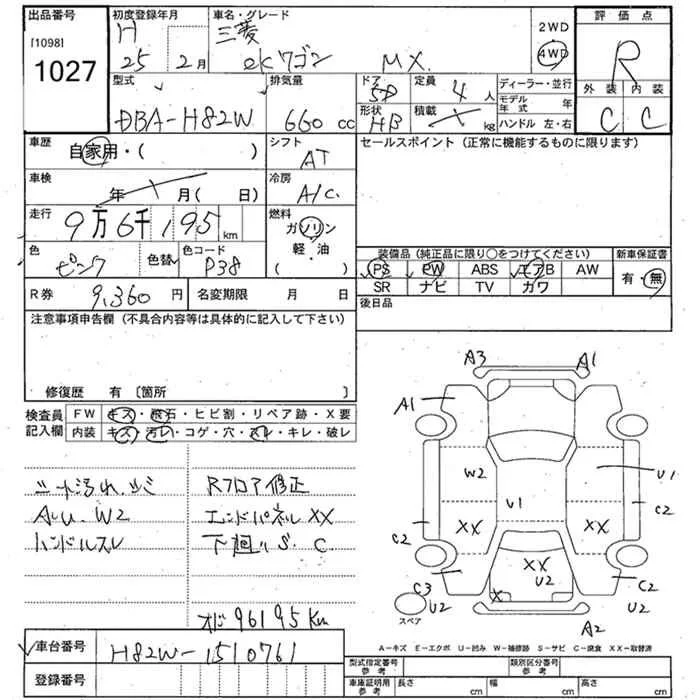 出品番号 初度登録年月 車名・グレード 2WD 評価点
[1098] H 三菱 4WD R
1027 25 2月 ekワゴン MX.
型式 排気量 ドア 定員 4人 ディーラー・並行 外装 内装
DBA-H82W 660 cc 5D 形状 HB 積載 kg モデル年式 年 C C
ハンドル 左・右
車歴 自家用・( ) シフト AT セールスポイント (正常に機能するものに限ります)
車検 年 月( 日) 冷房 A/C.
走行 9万6千195km 燃料 ガソリン
軽・油
( )
色 ピンク 色替 色コード P38 装備品 (純正品に限り○をつけてください) 新車保証書
PS PW ABS エアB AW 有・無
SR ナビ TV カワ
R券 9,360円 名変期限 月 日 後日品
注意事項申告欄 (不具合内容等は具体的に記入して下さい)
修復歴 有 [箇所 ]
検査員記入欄 FW キズ・飛石・ヒビ割・リペア跡・X要
内装 キズ・汚レ・コゲ・穴・スレ・キレ・破レ
シート汚れ、シミ Rフロア修正
AU. W2 エンドパネルXX
ハンドルスレ 下廻りS. C
オド 96195Km
A3 A1
A1
W2 U1 U1
C2 XX XX C2
XX
U2
C3 X C2
U2 U2
スペア A2
A-キズ E-エクボ U-凹み W-補修跡 S-サビ C-腐食 XX-取替済
車台番号 H82W-1510761
登録番号
型式指定番号 参考 類別区分番号 参考
車庫証明用 参考 長さ cm 幅 cm 高さ cm